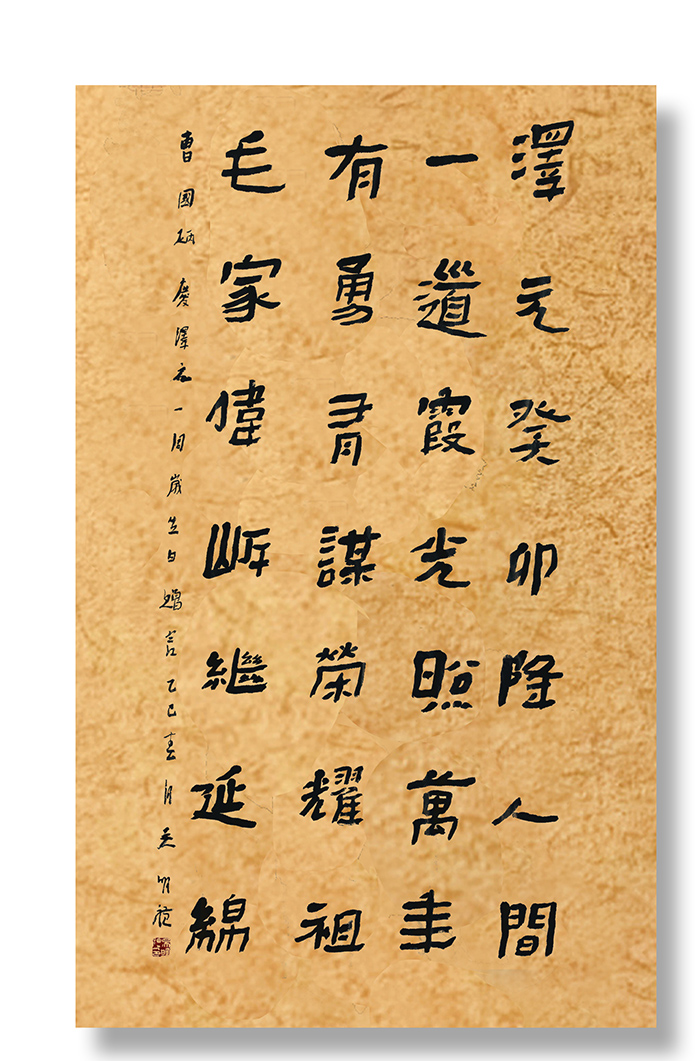 澤元癸卯降人間
一道霞光照萬年
有勇有謀榮耀祖
毛家偉岸繼延綿
曹國炳 慶澤元一周歲生日贈言乙巳春月吴明